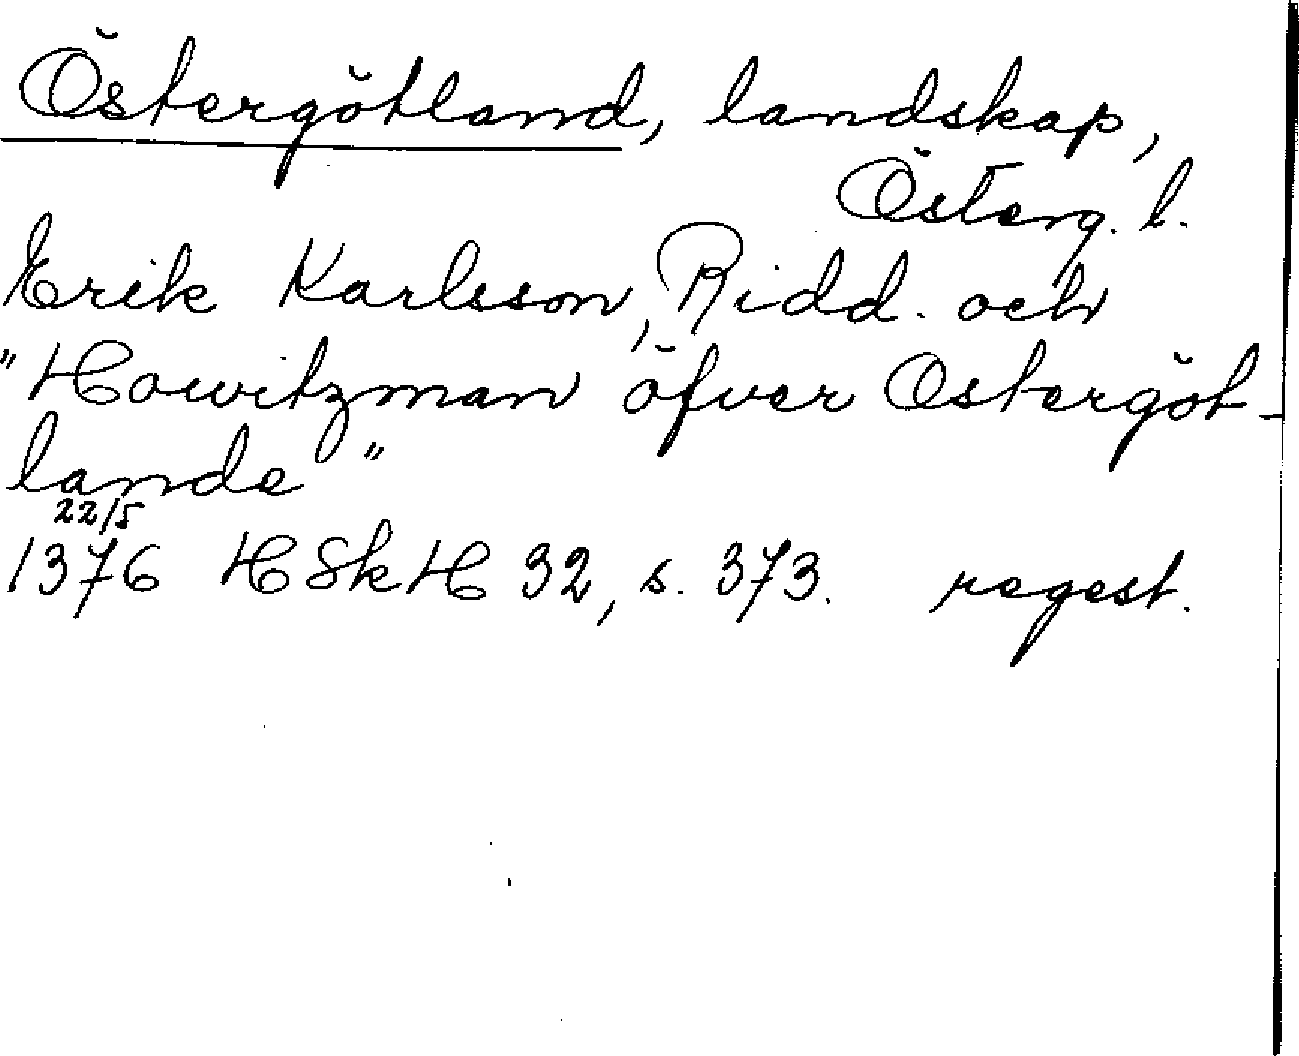 Östergötland, landskap,
Österg. l.
Erik Karlsson, Ridd. och
"Howitzman öfver Ostergöt-
lande"
22/5
1376 HSkH 32, s. 373. regest.